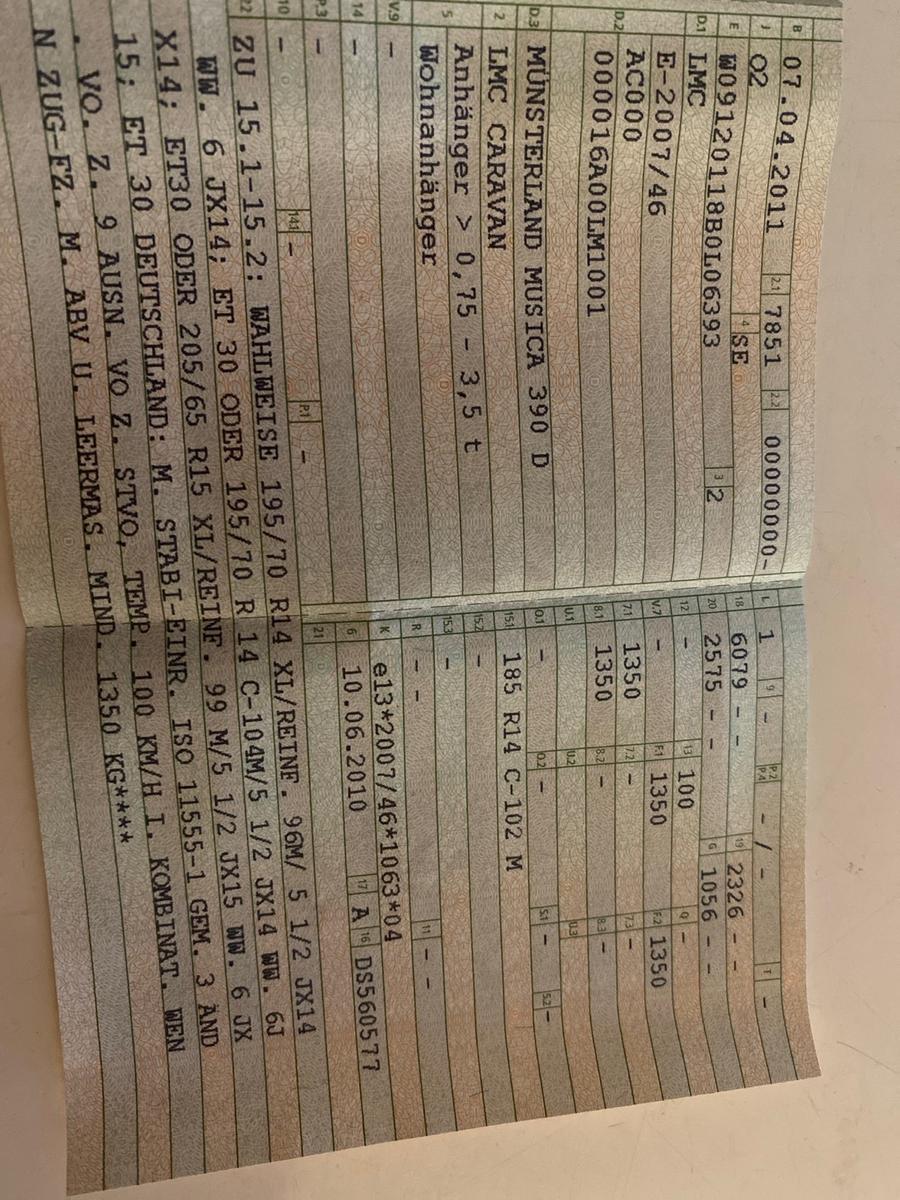 B 07.04.2011 2.1 7851 2.2 00000000-
J O2 4 SE
E W09120118B0L06393 3 2
D.1 LMC
E-2007/46
D.2 AC000
000016A00LM1001
D.3 MÜNSTERLAND MUSICA 390 D
2 LMC CARAVAN
5 Anhänger > 0,75 - 3,5 t
Wohnanhänger
V.9 -
14 -
P.3 -
10 - 14.1 - P.1 -
L 1 9 - P.2 P.4 - / - T -
18 6079 - - 19 2326 - -
20 2575 - - G 1056 - -
12 - 13 100 Q -
V.7 - F.1 1350 F.2 1350
7.1 1350 7.2 - 7.3 -
8.1 1350 8.2 - 8.3 -
U.1 U.2 U.3
O.1 - O.2 - S.1 - S.2 -
15.1 185 R14 C-102 M
15.2 -
15.3 -
R - - 11 - -
K e13*2007/46*1063*04
6 10.06.2010 17 A 16 DS560577
21
22 ZU 15.1-15.2: WAHLWEISE 195/70 R14 XL/REINF. 96M/ 5 1/2 JX14
WW. 6 JX14; ET 30 ODER 195/70 R 14 C-104M/5 1/2 JX14 WW. 6J
X14; ET30 ODER 205/65 R15 XL/REINF. 99 M/5 1/2 JX15 WW. 6 JX
15; ET 30 DEUTSCHLAND: M. STABI-EINR. ISO 11555-1 GEM. 3 ÄND
. VO. Z. 9 AUSN. VO Z. STVO, TEMP. 100 KM/H I. KOMBINAT. WEN
N ZUG-FZ. M. ABV U. LEERMAS. MIND. 1350 KG****